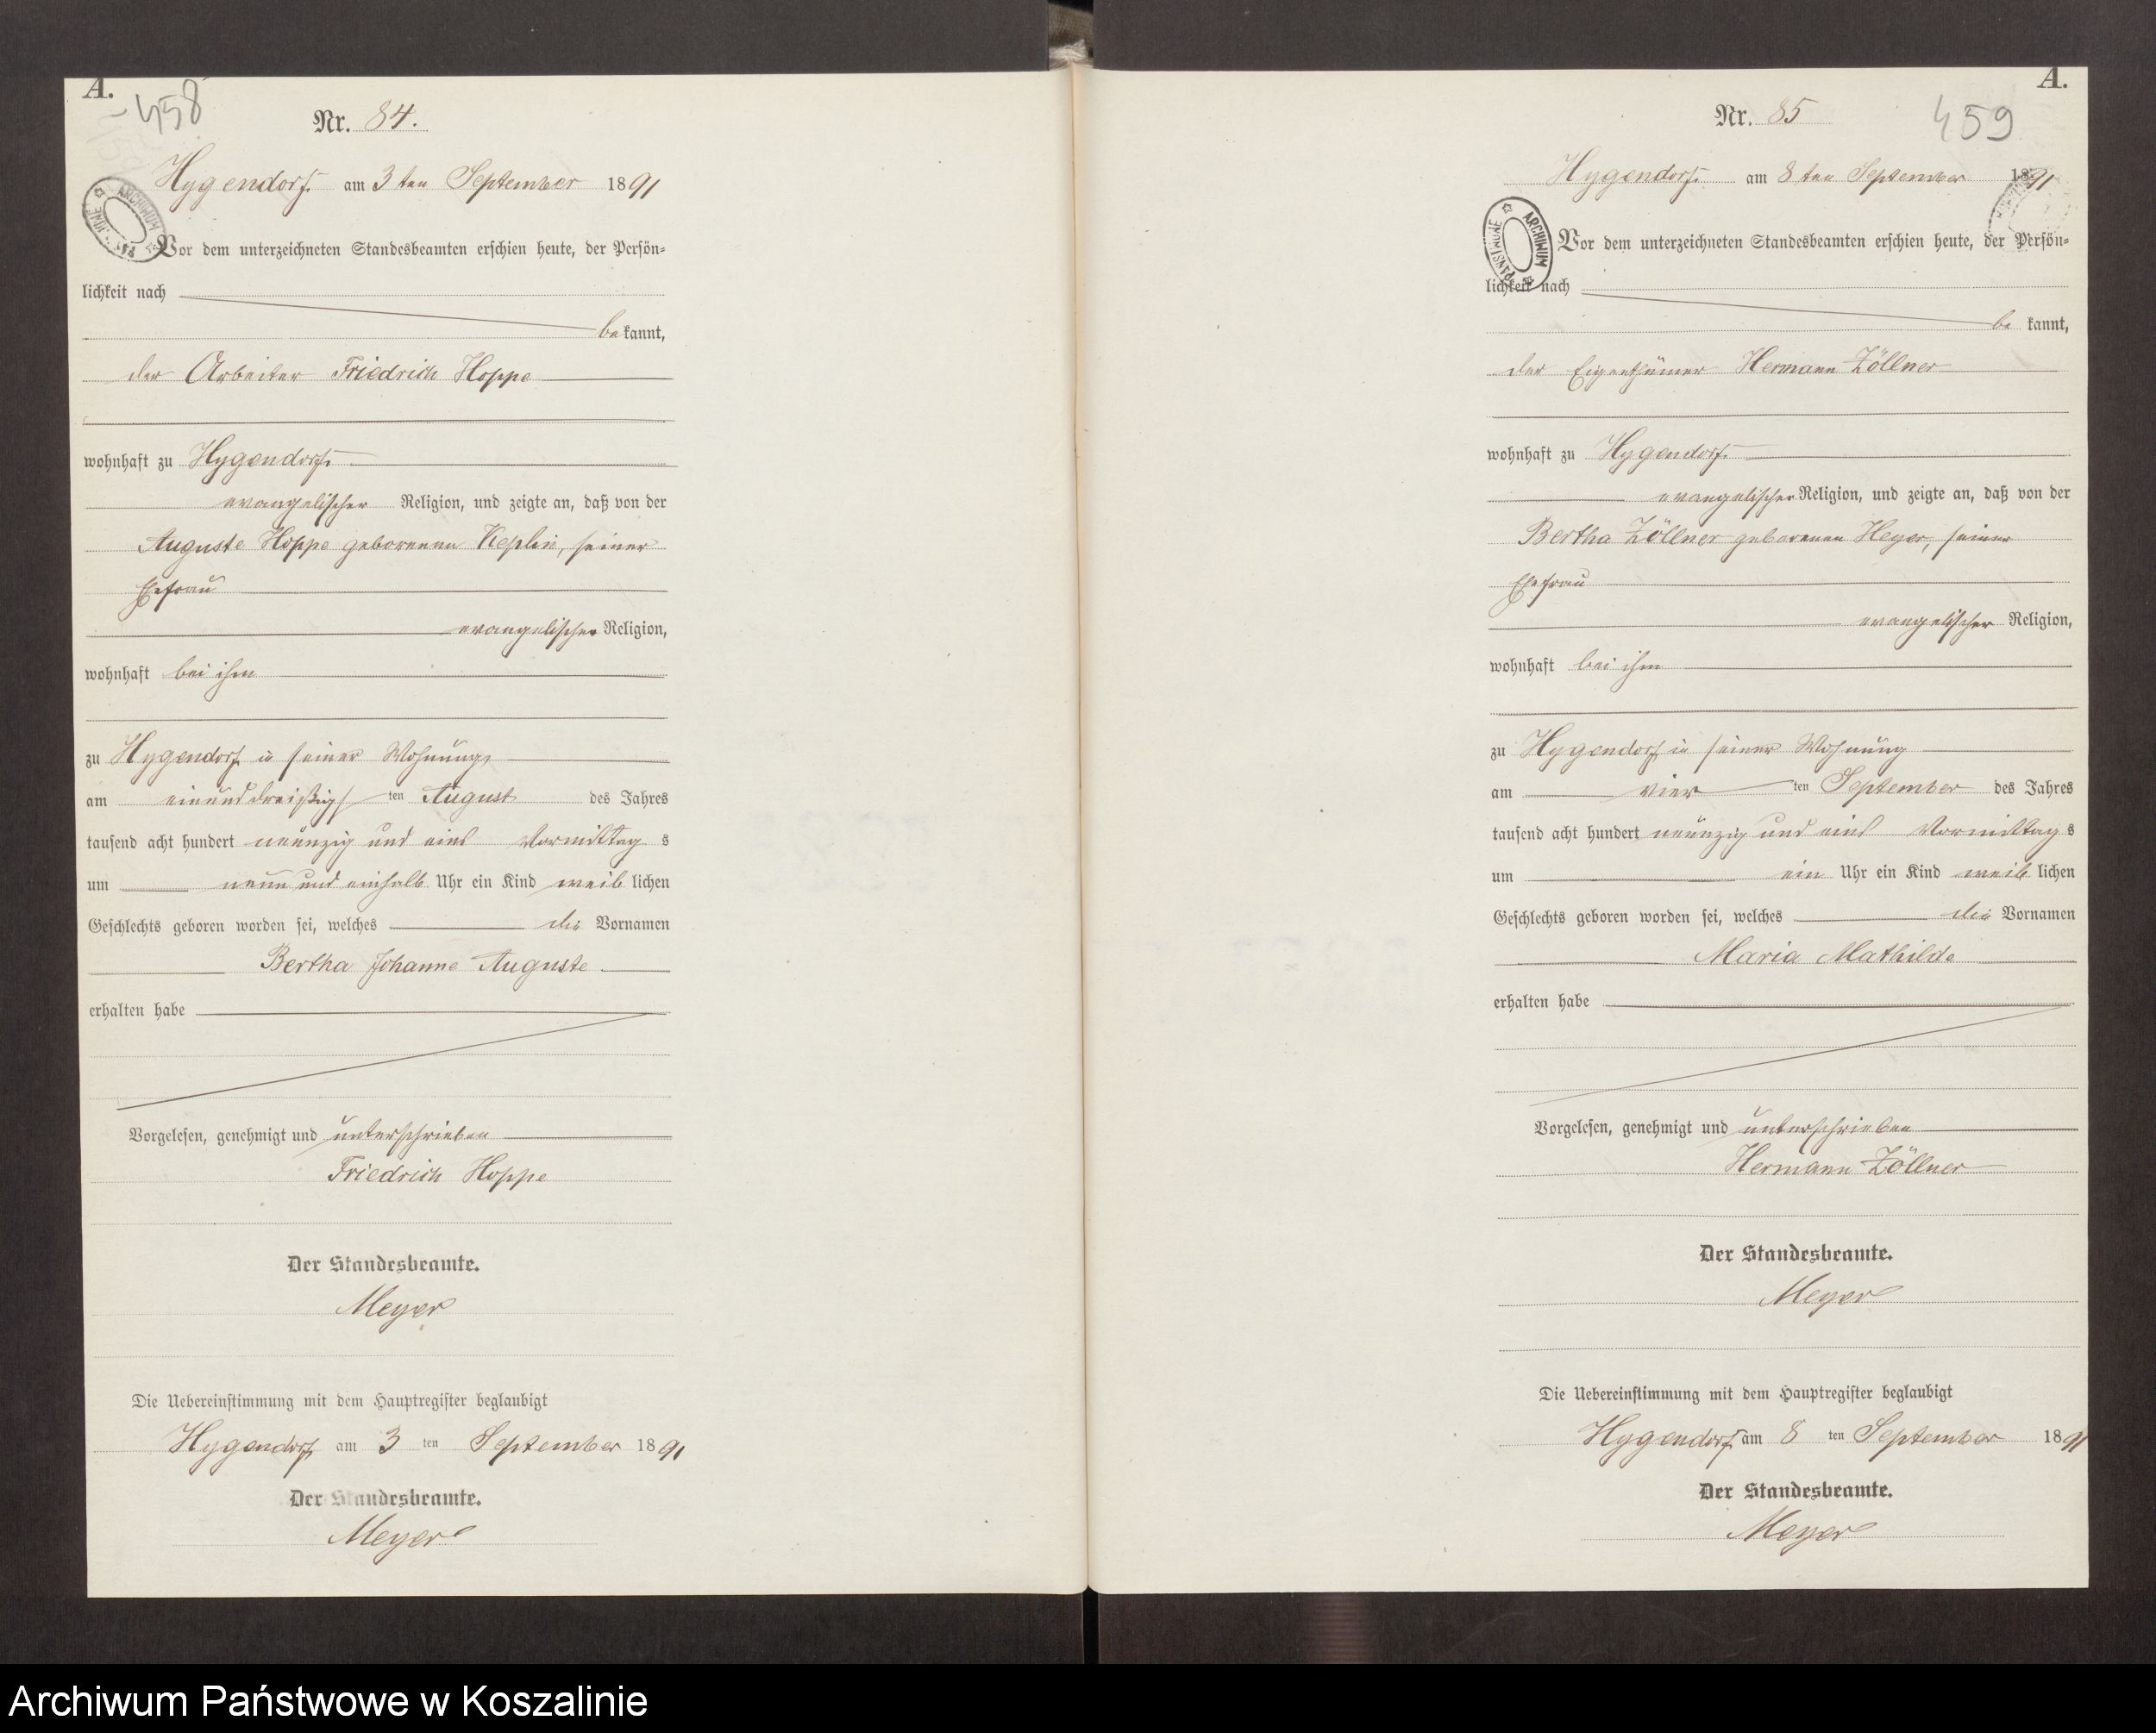 A.
458
Nr. 84.
Hygendorf am 3 ten September 1891
ARCHIWUM
Vor dem unterzeichneten Standesbeamten erschien heute, der Persön=
lichkeit nach
be kannt,
der Arbeiter Friedrich Hoppe
wohnhaft zu Hygendorf
evangelischer Religion, und zeigte an, daß von der
Auguste Hoppe geborenen Keplin, seiner
Ehefrau
evangelischer Religion,
wohnhaft bei ihm
zu Hygendorf in seiner Wohnung
am einunddreißigs ten August des Jahres
tausend acht hundert neunzig und eins Vormittag s
um neun und einhalb Uhr ein Kind weib lichen
Geschlechts geboren worden sei, welches die Vornamen
Bertha Johanne Auguste
erhalten habe
Vorgelesen, genehmigt und unterschrieben
Friedrich Hoppe
Der Standesbeamte.
Meyer
Die Uebereinstimmung mit dem Hauptregister beglaubigt
Hygendorf am 3 ten September 1891
Der Standesbeamte.
Meyer
A.
459
Nr. 85
Hygendorf am 8 ten September 1891
ARCHIWUM PAŃSTWOWE
Vor dem unterzeichneten Standesbeamten erschien heute, der Persön=
lichkeit nach
be kannt,
der Eigenthümer Hermann Zöllner
wohnhaft zu Hygendorf
evangelischer Religion, und zeigte an, daß von der
Bertha Zöllner geborenen Heyer, seiner
Ehefrau
evangelischer Religion,
wohnhaft bei ihm
zu Hygendorf in seiner Wohnung
am vier ten September des Jahres
tausend acht hundert neunzig und eins Vormittag s
um ein Uhr ein Kind weib lichen
Geschlechts geboren worden sei, welches die Vornamen
Maria Mathilde
erhalten habe
Vorgelesen, genehmigt und unterschrieben
Hermann Zöllner
Der Standesbeamte.
Meyer
Die Uebereinstimmung mit dem Hauptregister beglaubigt
Hygendorf am 8 ten September 1891
Der Standesbeamte.
Meyer
Archiwum Państwowe w Koszalinie